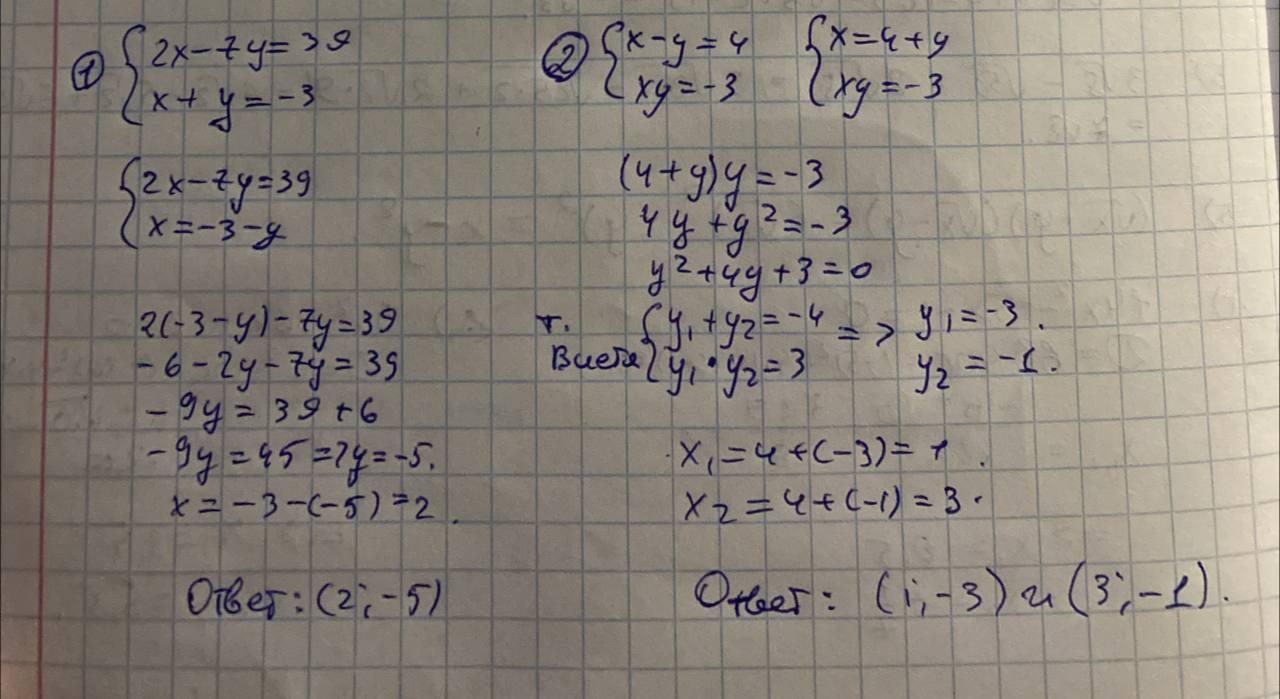 ① {2x-7y=39
{x+y=-3
{2x-7y=39
{x=-3-y
2(-3-y)-7y=39
-6-2y-7y=39
-9y=39+6
-9y=45=>y=-5.
x=-3-(-5)=2.
Ответ: (2;-5)
② {x-y=4 {x=4+y
{xy=-3 {xy=-3
(4+y)y=-3
4y+y²=-3
y²+4y+3=0
т. {y₁+y₂=-4 => y₁=-3.
Виета {y₁·y₂=3 y₂=-1.
x₁=4+(-3)=1.
x₂=4+(-1)=3.
Ответ: (1;-3) и (3;-1).